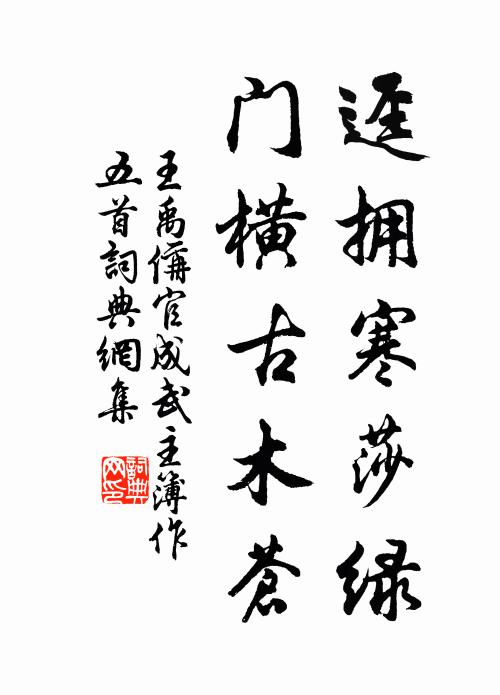 逕拥寒莎绿
门横古木苍
王禹偁官成武主簿作
五首詞典網集
詞典
网印